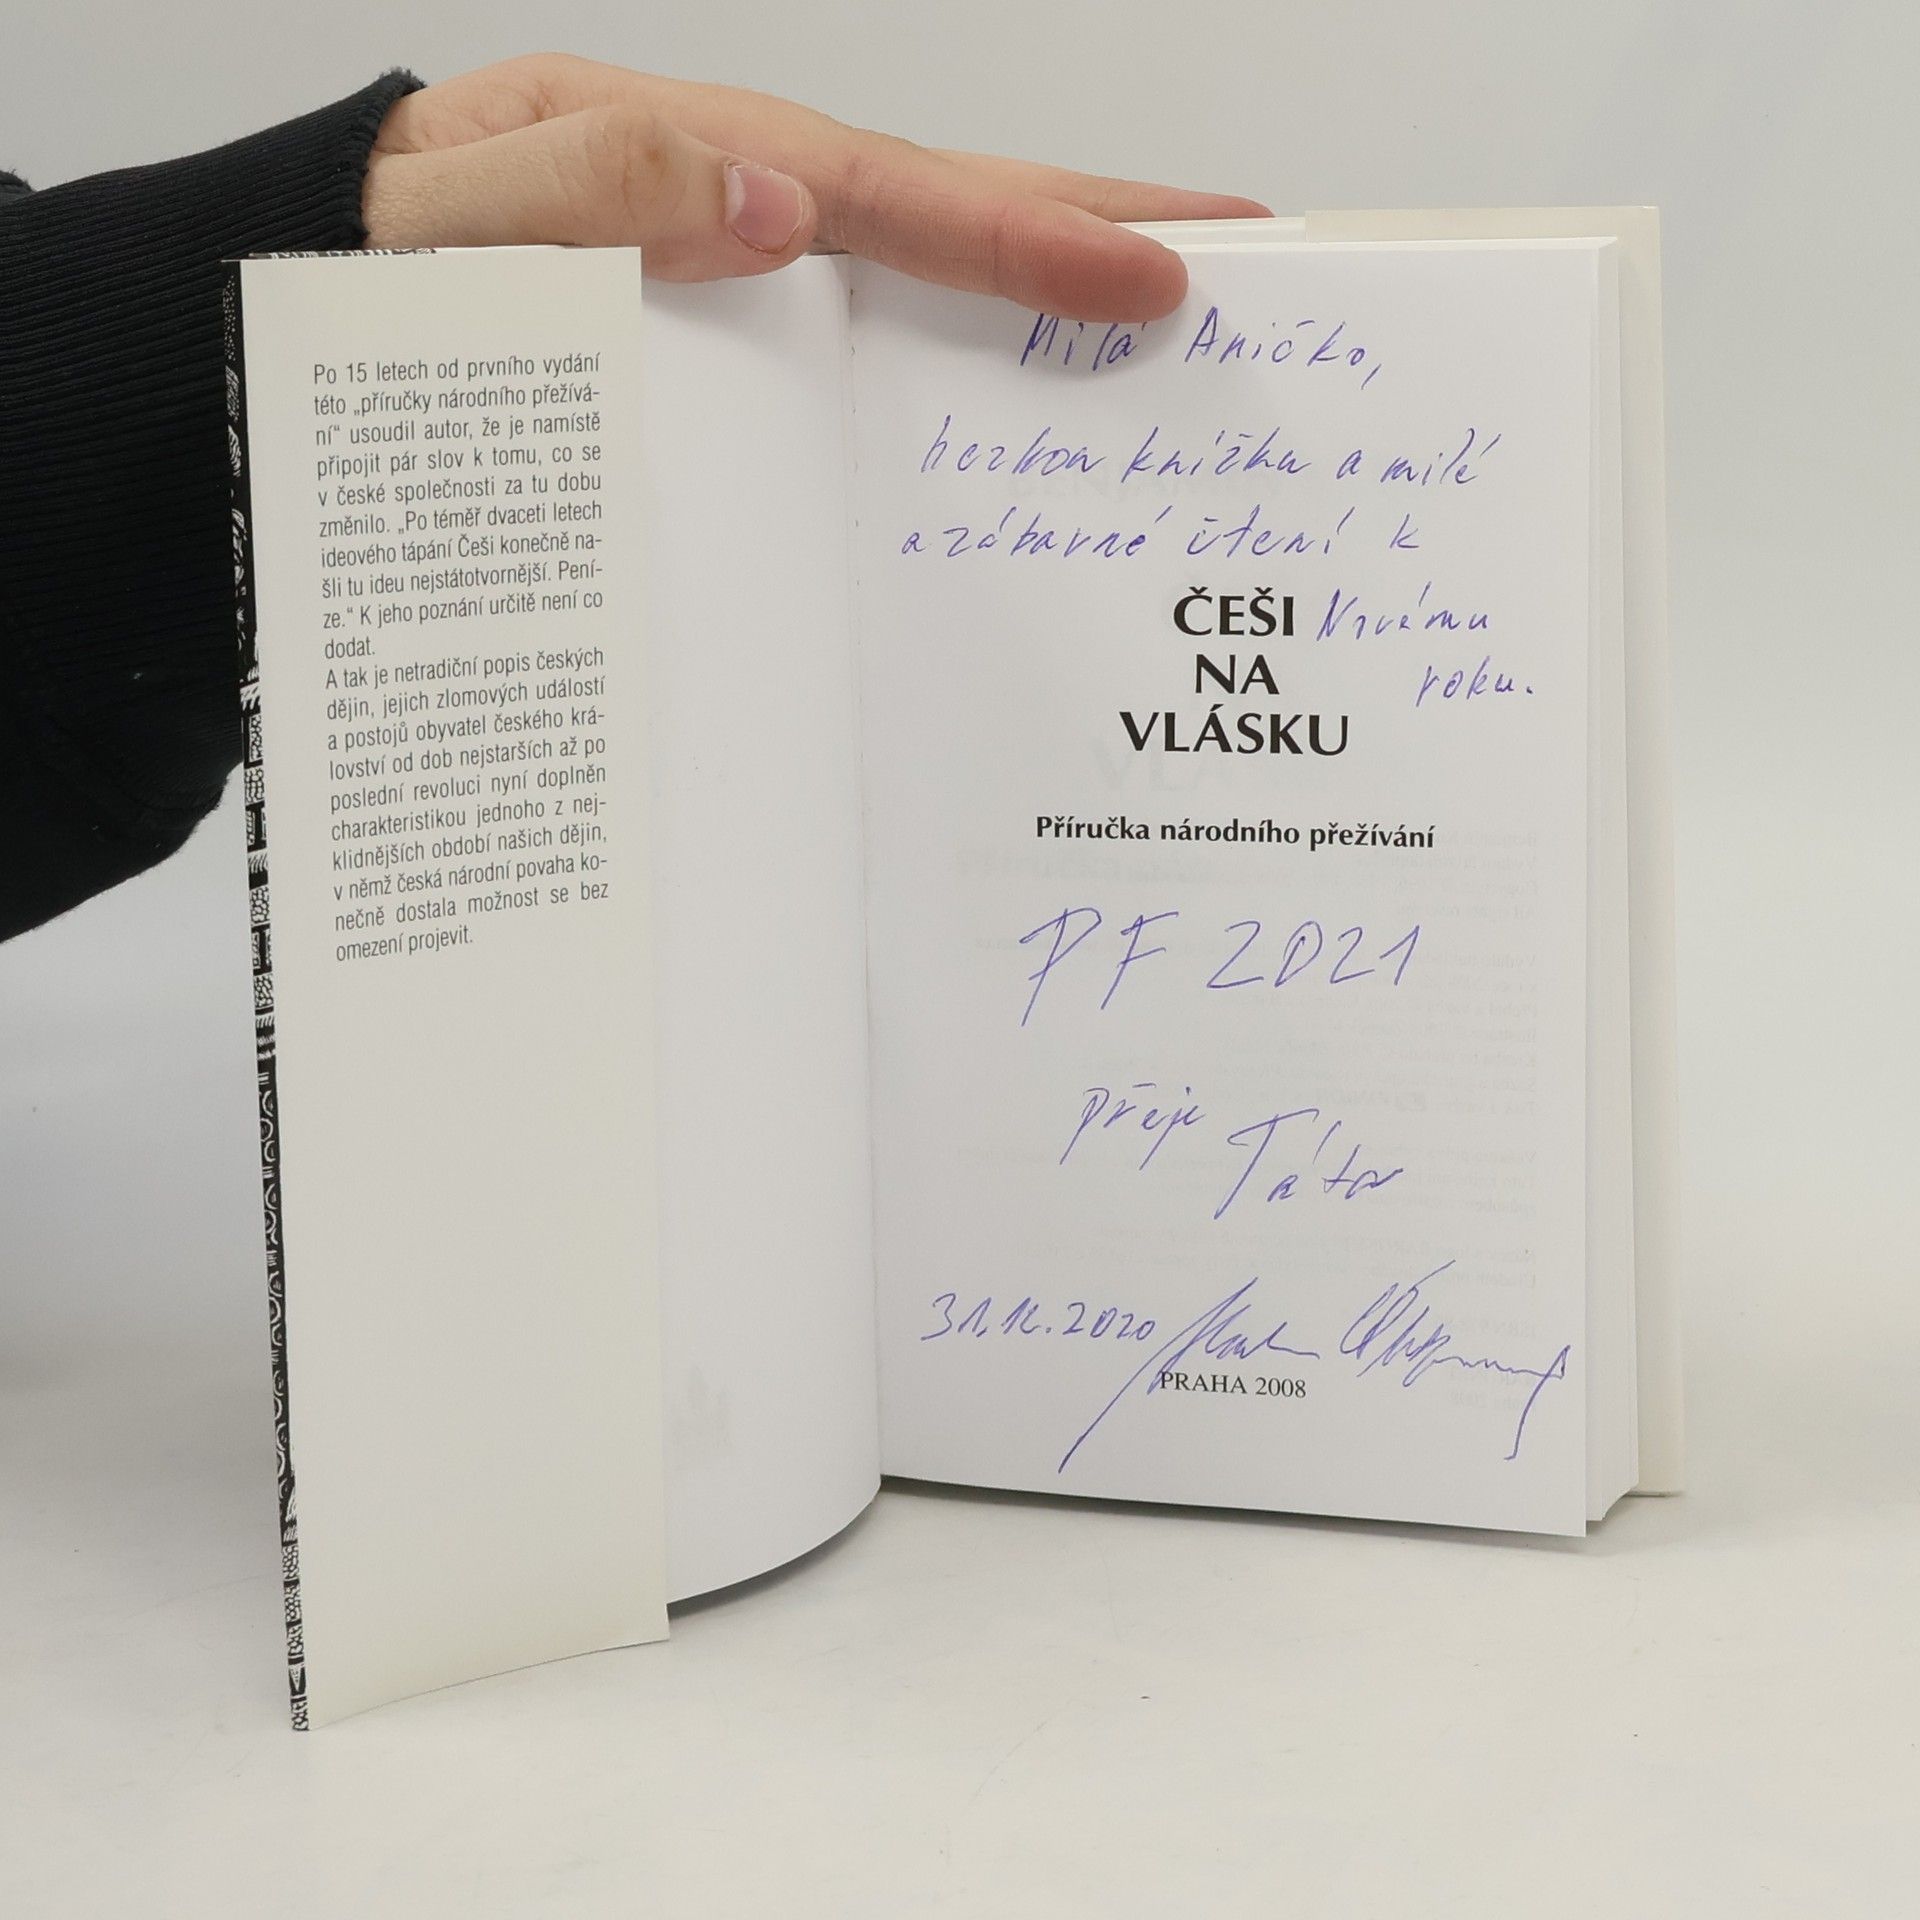 Po 15 letech od prvního vydání
této „příručky národního přežívá-
ní“ usoudil autor, že je namístě
připojit pár slov k tomu, co se
v české společnosti za tu dobu
změnilo. „Po téměř dvaceti letech
ideového tápání Češi konečně na-
šli tu ideu nejstátotvornější. Pení-
ze.“ K jeho poznání určitě není co
dodat.
A tak je netradiční popis českých
dějin, jejich zlomových událostí
a postojů obyvatel českého krá-
lovství od dob nejstarších až po
poslední revoluci nyní doplněn
charakteristikou jednoho z nej-
klidnějších období našich dějin,
v němž česká národní povaha ko-
nečně dostala možnost se bez
omezení projevit.
Milá Aničko,
hezkou knížku a milé
a zábavné čtení k
ČEŠI Novému
NA
roku.
VLÁSKU
Příručka národního přežívání
PF 2021
přeje
Táta
31.12.2020
PRAHA 2008